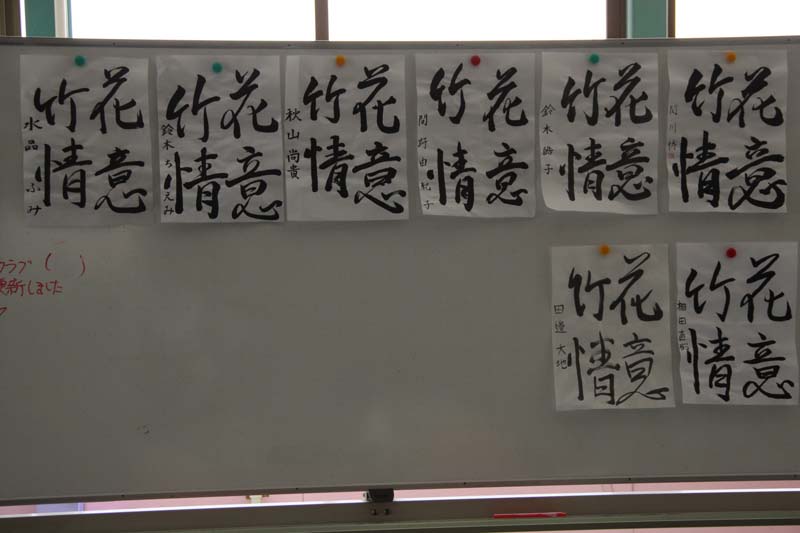 花意
竹情
水品 ふみ
花意
竹情
鈴木 ちえみ
花意
竹情
秋山 尚貴
花意
竹情
間野 由紀子
花意
竹情
鈴木 子
花意
竹情
花意
竹情
田邉 大地
花意
竹情
相田
クラブ( )
更新しました